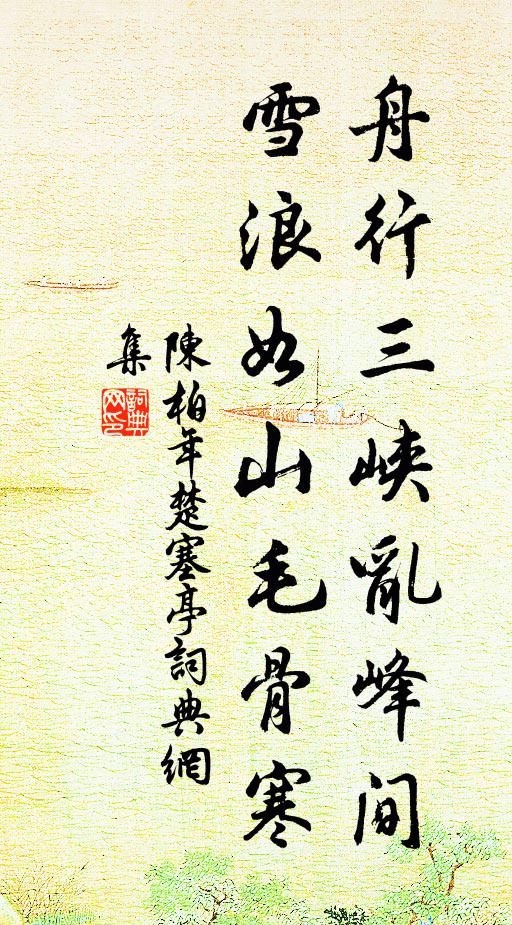 舟行三峡亂峰间
雪浪如山毛骨寒
陳柏年楚塞亭詞典網
集
詞典
网印